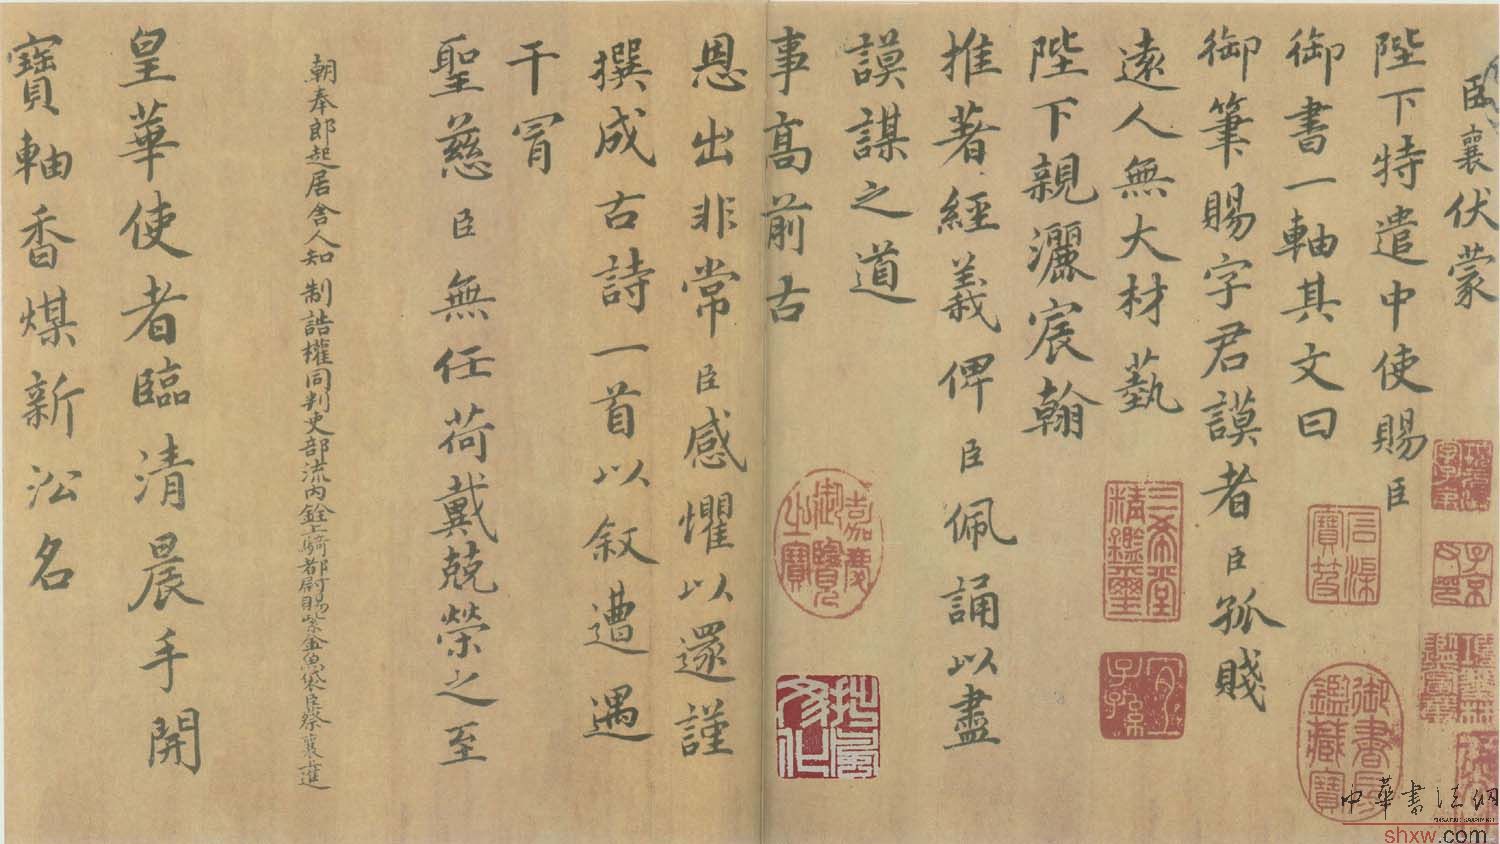 臣襄伏蒙
陛下特遣中使賜臣
御書一軸其文曰
御筆賜字君謨者臣孤賤
遠人無大材藝
陛下親灑宸翰
推著經義俾臣佩誦以盡
謨謀之道
事髙前古
恩出非常臣感懼以還謹
撰成古詩一首以叙遭遇
干冒
聖慈臣無任荷戴兢榮之至
朝奉郎起居舍人知 制誥權同判吏部流内銓上騎都尉賜紫金魚袋臣蔡襄上進
皇華使者臨清晨手開
寶軸香煤新㳂名
三希堂精鑑璽
宜子孫
嘉慶御覽之寶
御書房鑑藏寶
中華書法網
shxw.com